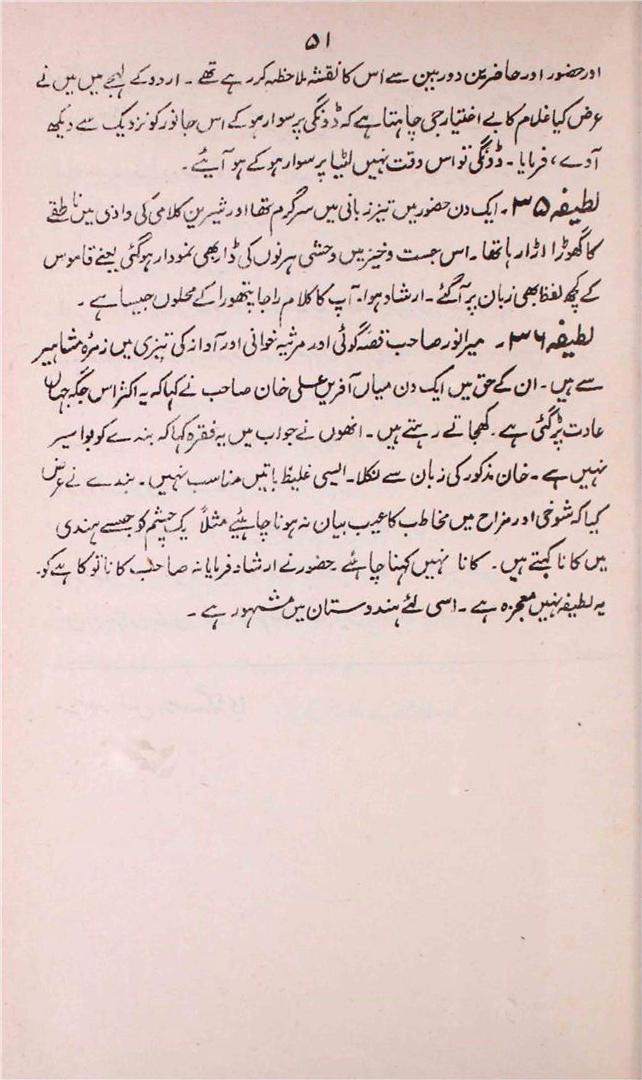 ۵۱
اور حضور اور حاضرین دوربین سے اس کا نقشہ ملاحظہ کر رہے تھے ۔ اردو کے لہجے میں میں نے
عرض کیا غلام کا بے اختیار جی چاہتا ہے کہ ڈونگی پر سوار ہو کے اس جانور کو نزدیک سے دیکھ
آوے، فرمایا ۔ ڈونگی تو اس وقت نہیں لٹیا پر سوار ہو کے ہو آیئے ۔
لطیفہ ۳۵ ۔ ایک دن حضور میں تیز زبانی میں سرگرم تھا اور شیریں کلامی کی وادی میں ناطقے
کا گھوڑا اڑا رہا تھا ۔ اس جست و خیز میں وحشی ہرنوں کی ڈار بھی نمودار ہوگئی یعنے قاموس
کے کچھ لفظ بھی زبان پر آگئے ۔ ارشاد ہوا ۔ آپ کا کلام راجا پتھورا کے محلوں جیسا ہے ۔
لطیفہ ۳۶ ۔ میر انور صاحب قصّہ گوئی اور مرثیہ خوانی اور آوازہ کی تیزی میں زمرۂ مشاہیر
سے ہیں ۔ ان کے حق میں ایک دن میاں آفریں علی خان صاحب نے کہا کہ یہ اکثر اس جگہ جہاں
عادت پڑ گئی ہے کھجاتے رہتے ہیں ۔ انھوں نے جواب میں یہ فقرہ کہا کہ بندے کو بواسیر
نہیں ہے ۔ خان مذکور کی زبان سے نکلا ۔ ایسی غلیظ باتیں مناسب نہیں ۔ بندے نے عرض
کیا کہ شوخی اور مزاح میں مخاطب کا عیب بیان نہ ہونا چاہئیے مثلاً یک چشم کو جسے ہندی
میں کانا کہتے ہیں ۔ کانا نہیں کہنا چاہئے حضور نے ارشاد فرمایا نہ صاحب کانا تو کاہے کو ۔
یہ لطیفہ نہیں معجزہ ہے ۔ اسی لئے ہندوستان میں مشہور ہے ۔